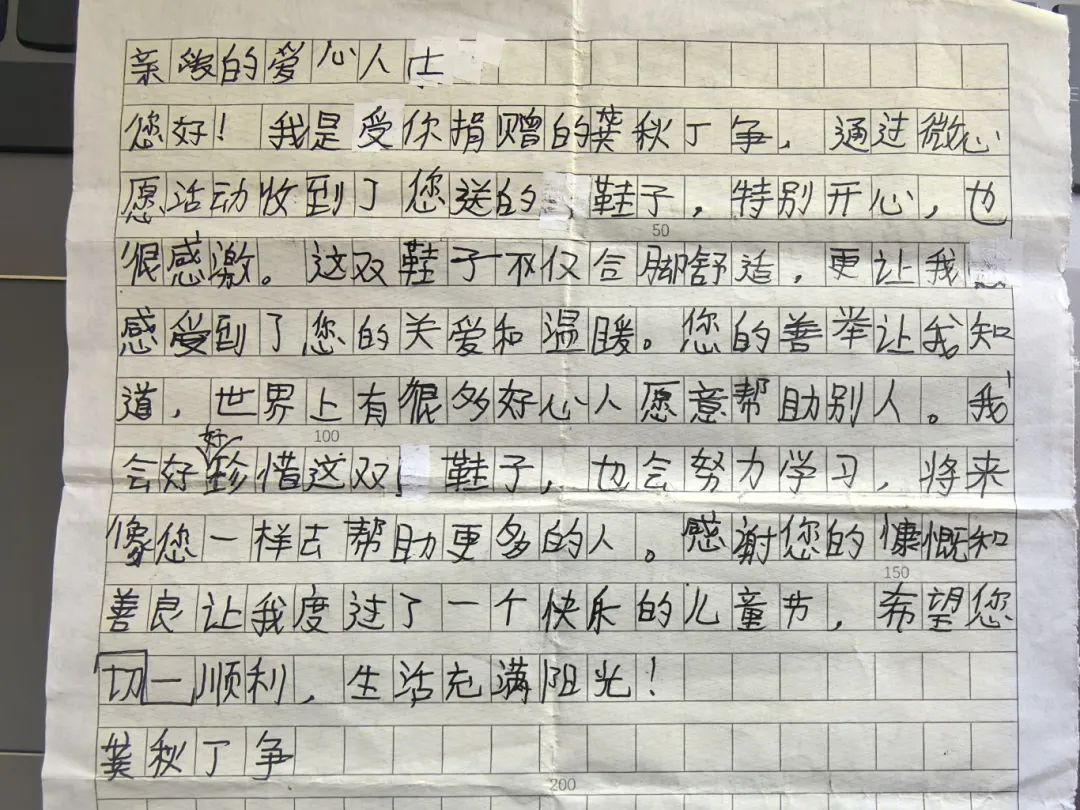 亲爱的爱心人士
您好！我是受你捐赠的龚秋丁争，通过微心
愿活动收到了您送的鞋子，特别开心，也
50
很感激。这双鞋子不仅合脚舒适，更让我
感受到了您的关爱和温暖。您的善举让我知
道，世界上有很多好心人愿意帮助别人。我
100
会好好珍惜这双鞋子，也会努力学习，将来
像您一样去帮助更多的人。感谢您的慷慨和
150
善良让我度过了一个快乐的儿童节，希望您
切一顺利，生活充满阳光！
龚秋丁争
200